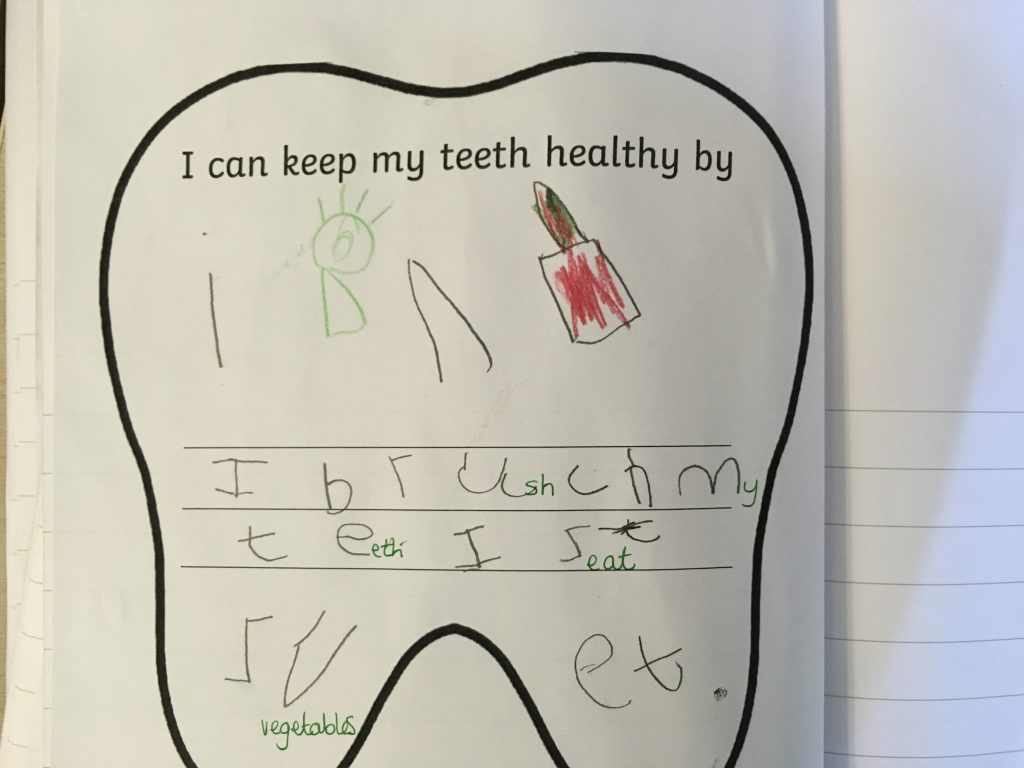 I can keep my teeth healthy by
I b r u sh c h m y
t e eth I eat
e t
vegetables